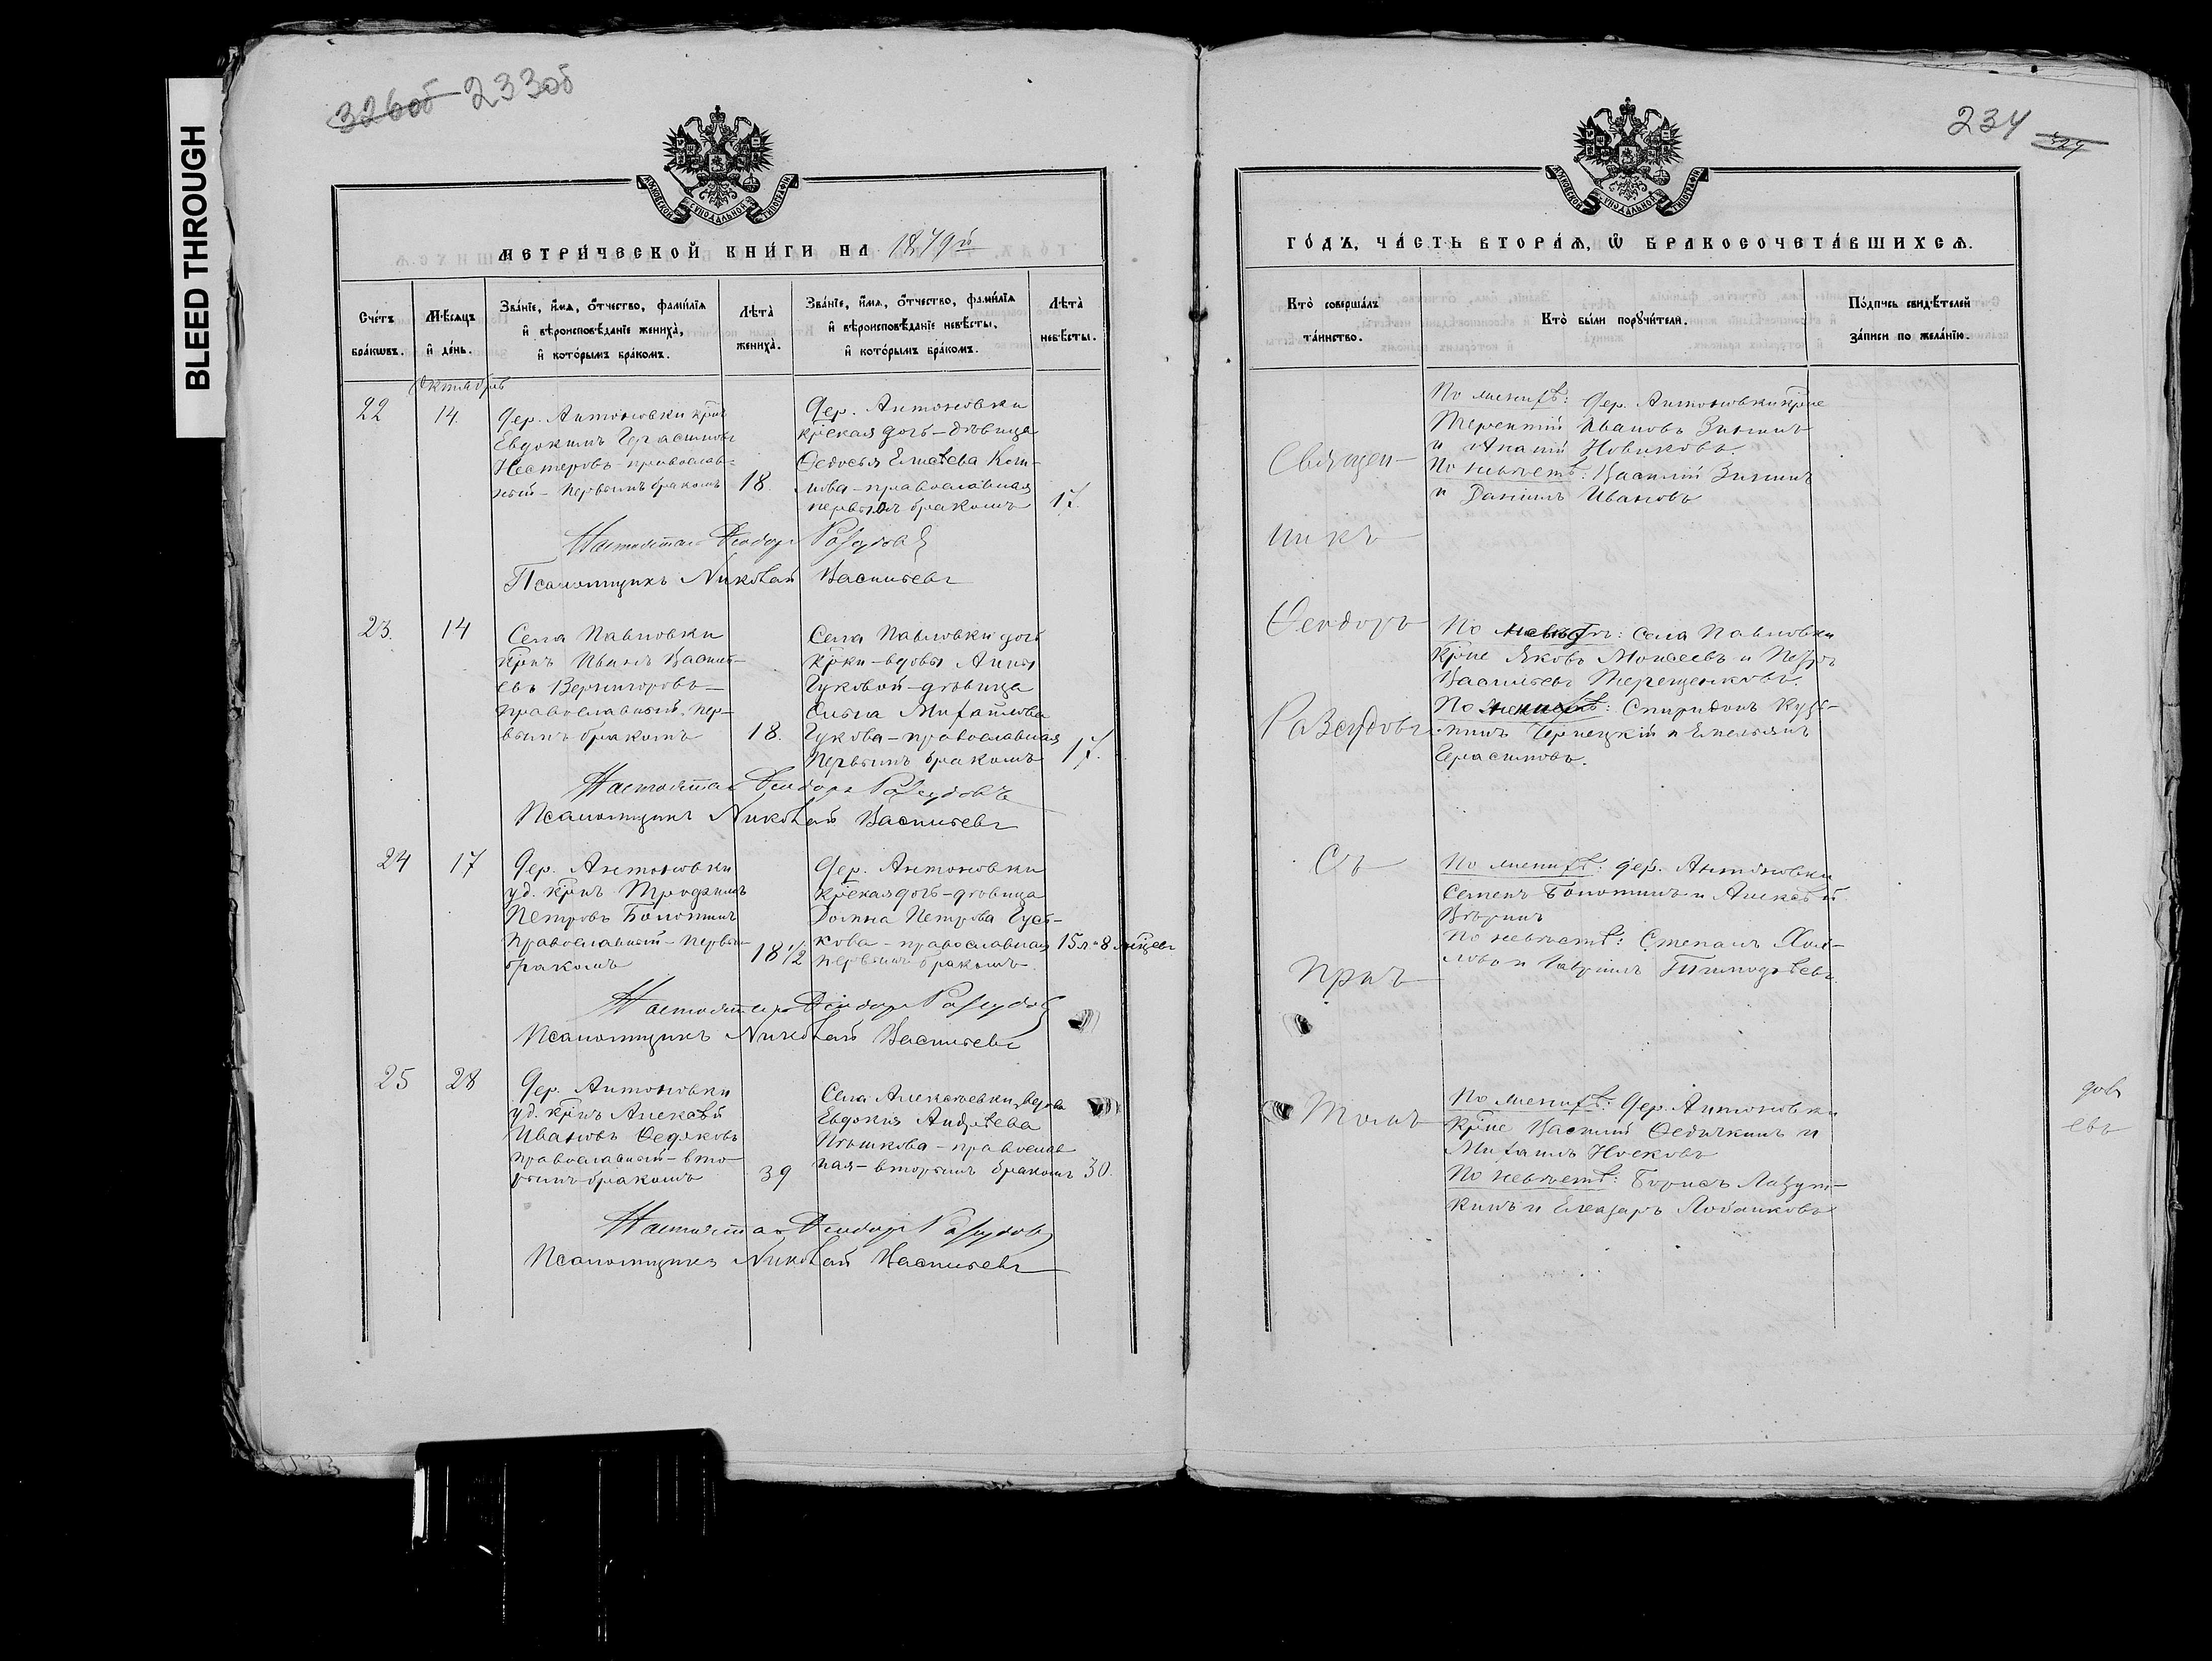 BLEED THROUGH
326об 233об
МЕТРИ́ЧЕСКОЙ КНИ́ГИ НА 1879й
Сче́тъ бра́кѡвъ.
Мѣ́сяцъ и̂ де́нь.
Зва́нїе, и҆́мѧ, о҆́тчество, фами́лїѧ и҆ вѣроисповѣ́данїе жениха̀, и҆ кото́рымъ бра́комъ.
Лѣта̀ жениха̀.
Зва́нїе, и҆́мѧ, о҆́тчество, фами́лїѧ и҆ вѣроисповѣ́данїе невѣ́сты, и҆ кото́рымъ бра́комъ.
Лѣта̀ невѣ́сты.
Октябрь
22
14.
Дер. Антоновки крнъ
Евдокимъ Герасимовъ
Нестеровъ - православ=
ный - первымъ бракомъ
18.
Дер. Антоновки
крѣская дочь - дѣвица
Ѳедосья Елисѣева
православная
первымъ бракомъ
17.
Настоятель Ѳеодоръ Разсудовъ
Псаломщикъ Николай Васильевъ
23.
14
Села Павловки
крнъ Иванъ Василь-
евъ Вернигоровъ -
православный, пер-
вымъ бракомъ
18.
Села Павловки дочь
крки - вдовы Анны
Гуковой - дѣвица
Михайлова
Гукова - православная
первымъ бракомъ
17.
Настоятель Ѳеодоръ Разсудовъ
Псаломщикъ Николай Васильевъ
24
17
Дер. Антоновки
уд. крнъ Трофимъ
Петровъ Болотинъ
православный - первым
бракомъ
18 1/2
Дер. Антоновки
крѣская дочь - дѣвица
Домна Петрова Гусь-
кова - православная
первымъ бракомъ.
15 л. 8 мѣцев
Настоятель Ѳеодоръ Разсудовъ
Псаломщикъ Николай Васильевъ
25
28
Дер. Антоновки
уд. крнъ Алексѣй
Ивановъ Ѳедяковъ
православный - вто-
рымъ бракомъ
39
Села Алексѣевки, вдова
Евдокия Андрѣева
Пѣшкова - православ
ная - вторымъ бракомъ
30.
Настоятель Ѳеодоръ Разсудовъ
Псаломщикъ Николай Васильевъ
234
327
ГО́ДЪ, ЧА́СТЬ ВТОРА́Ѧ, Ѽ БРАКОСОЧЕТА́ВШИХСѦ.
Кто̀ соверша́лъ та́инство.
Кто̀ бы́ли пору́чители.
По́дпись свидѣ́телей за́писи по жела́нїю.
Священ-
никъ
Ѳеодоръ
Разсудовъ
Съ
При
По женихѣ: Дер. Антоновки крне
Терентій Ивановъ Зининъ
и Ананій Новиковъ.
По невѣстѣ: Василій Зининъ
и Даніилъ Ивановъ
По : села Павловки
крне Яковъ Моисеевъ и Петръ
Васильевъ Терещенковъ.
По : Спиридонъ Кузь-
минъ Чернецкій и Емельянъ
Герасимовъ.
По женихѣ: дер. Антоновки
Семенъ Болотинъ и Алексѣй
По невѣстѣ: Степанъ
и Гавріилъ Тимоѳѣевъ.
По женихѣ: Дер. Антоновки
крне Василій Ѳедячкинъ и
Михаилъ Носковъ
По невѣстѣ: Борисъ Лазут-
кинъ и Елеазаръ Лобановъ
дов
евъ